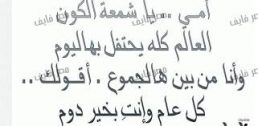 أمـي .. يا شمعة الكون
العالم كله يحتفل بهاليوم
وأنا من بين هالجموع . أقـولك ..
كل عام وإنتِ بخير دوم